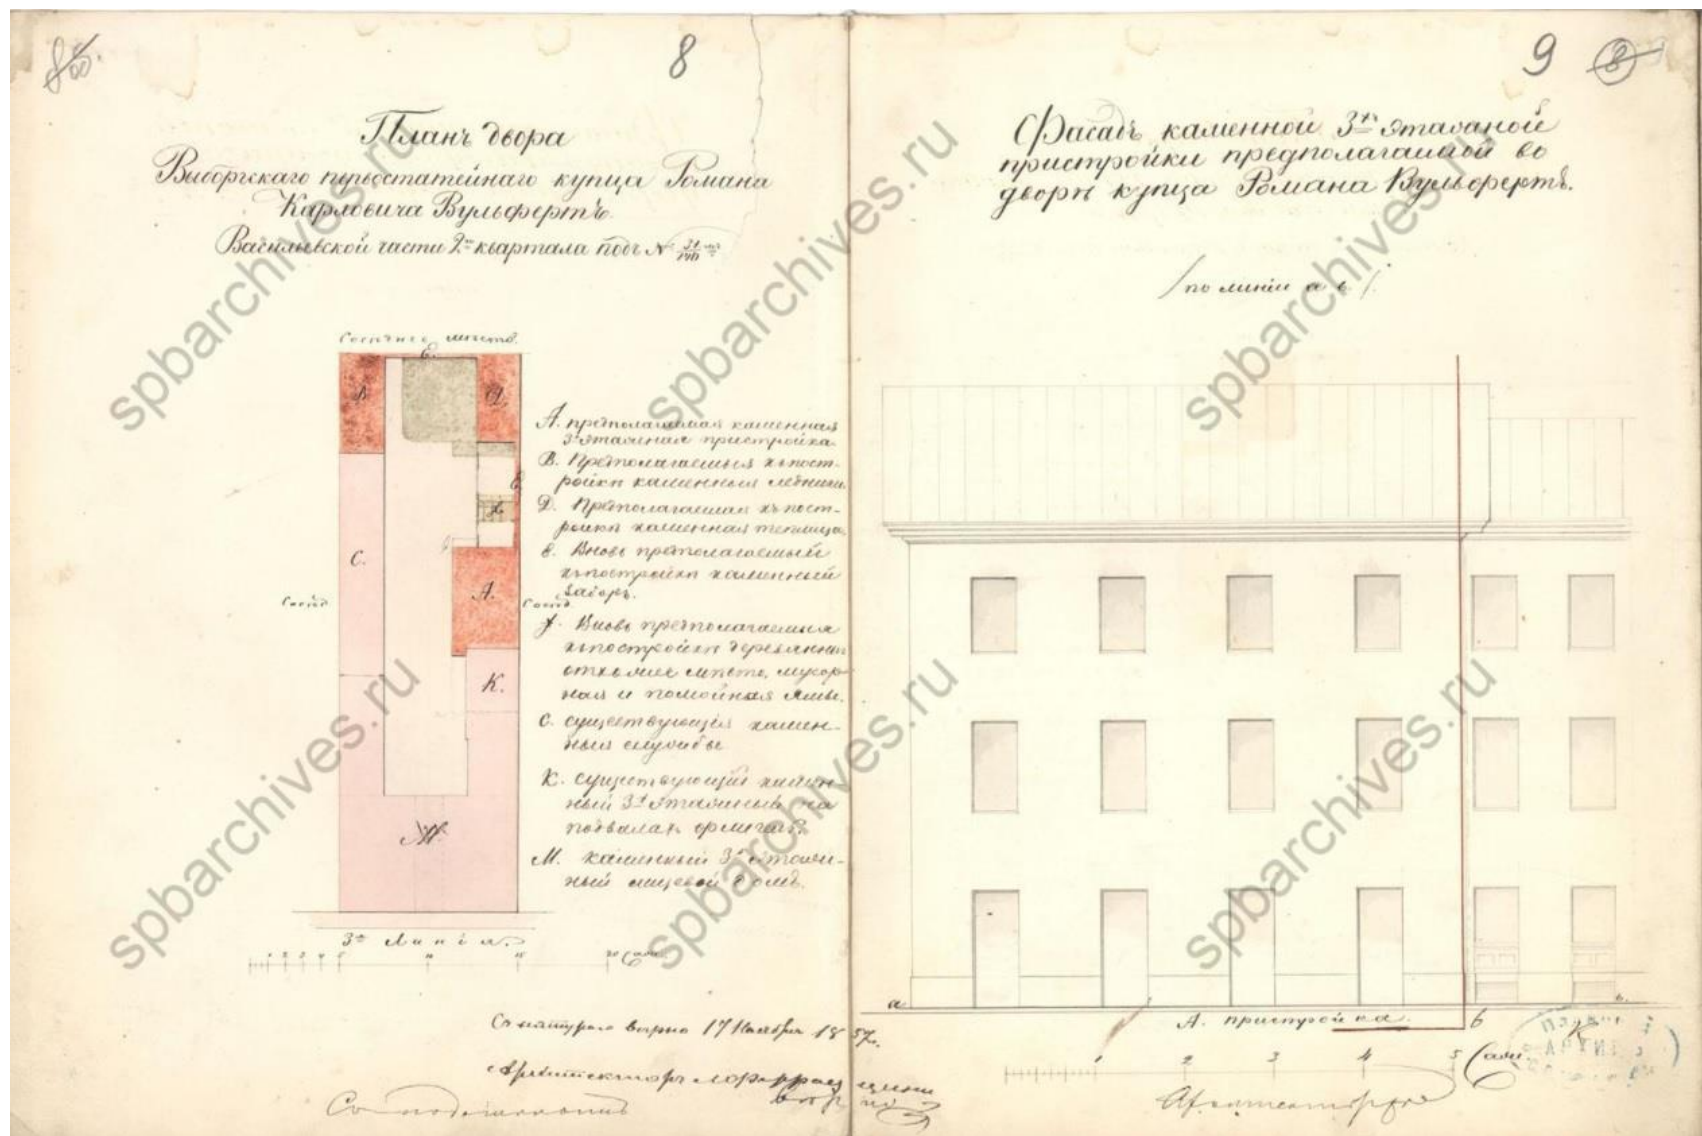 8
Планъ двора
Выборгскаго первостатейнаго купца Романа
Карловича Вульфертъ.
Васильевской части 2го квартала подъ №
Сосѣднее мѣсто.
Е.
В
Д.
А. предполагаемая каменная
3х этажная пристройка
В. Предполагаемыя къ пост-
ройкѣ каменныя ледники.
Д. Предполагаемая къ пост-
ройкѣ каменная теплица
е. Вновь предполагаемый
къ постройкѣ каменный
заборъ.
Вновь предполагаемыя
къ постройкѣ деревянныя
отхожее мѣсто, мусор-
ная и помойная ямы.
С. существующія камен-
ныя службы
К. существующій камен-
ный 3х этажный на
подвалахъ флигель.
М. каменный 3х этаж-
ный лицевой домъ.
С.
А.
Сосѣд.
Сосѣд.
К.
М.
3я Линія.
1 2 3 4 5 10 15 20 Саж.
Съ натурою вѣрно 17 Ноября 1857г.
Архитекторъ
Съ подлиннымъ вѣрно
9 8
Фасадъ каменной 3хъ этажной
пристройки предполагаемой во
дворѣ купца Романа Вульфертъ.
/по линіи а в./
а
б
в.
А. пристройка.
К
1 2 3 4 5 Саж.
Архитекторъ
spbarchives.ru
spbarchives.ru
spbarchives.ru
spbarchives.ru
spbarchives.ru
spbarchives.ru